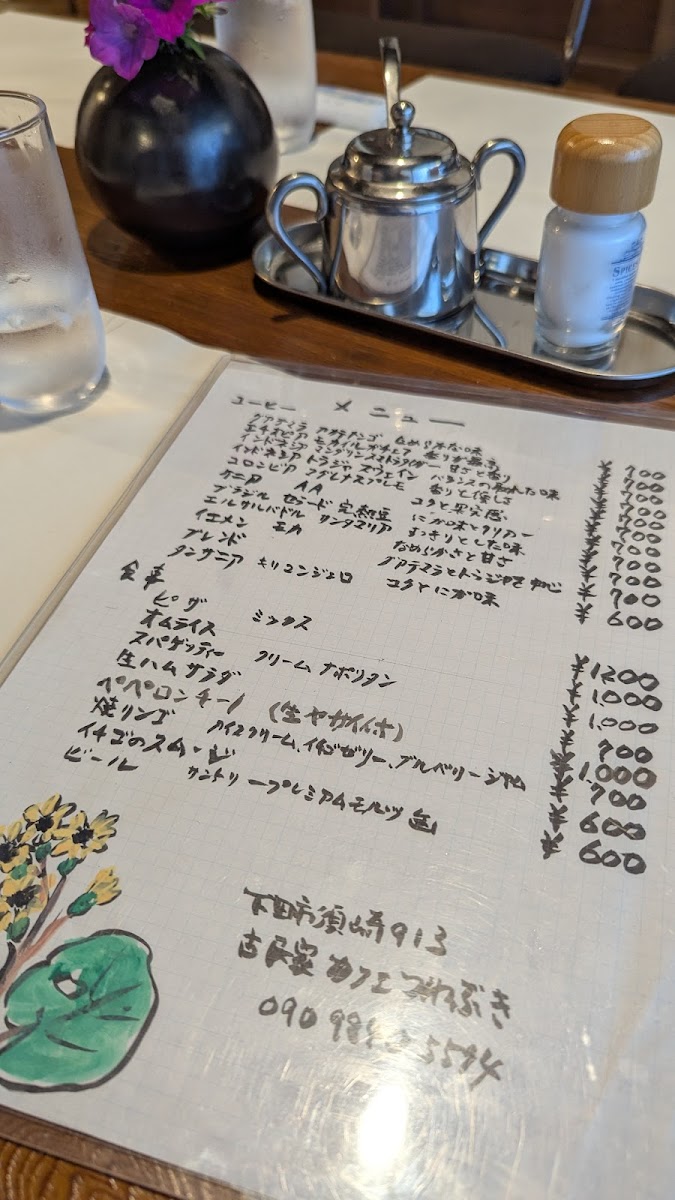 メニュー
コーヒー
グアテマラ アンティグア なめらかな味 ¥700
エチオピア モカイルガチェフ 香りが最高 ¥700
インドネシア マンデリンスマトラタイガー 甘さと香り ¥700
インドネシア トラジャ スウェイン バランスの取れた味 ¥700
コロンビア マグダレナスプレモ 香りと優しさ
ケニア AA コクと果実感 ¥700
ブラジル セラード 完熟豆 にが味とクリアー ¥700
エルサルバドル サンタマリア すっきりとした味 ¥700
イエメン モカ なめらかさと甘さ ¥700
ブレンド グアテマラとトラジャを中心 ¥700
タンザニア キリマンジェロ コクとにが味 ¥600
食事
ピザ ミックス ¥1200
オムライス ¥1,000
スパゲッティー クリームナポリタン ¥1,000
生ハムサラダ ¥700
ペペロンチーノ (生ヤサイ付) ¥1,000
焼リンゴ アイスクリーム、イチゴゼリー、ブルーベリージャム ¥700
イチゴのスムージ ¥600
ビール サントリープレミアムモルツ 缶 ¥600
下田市須崎913
古民家カフェつわぶき
090
5594
SPICE